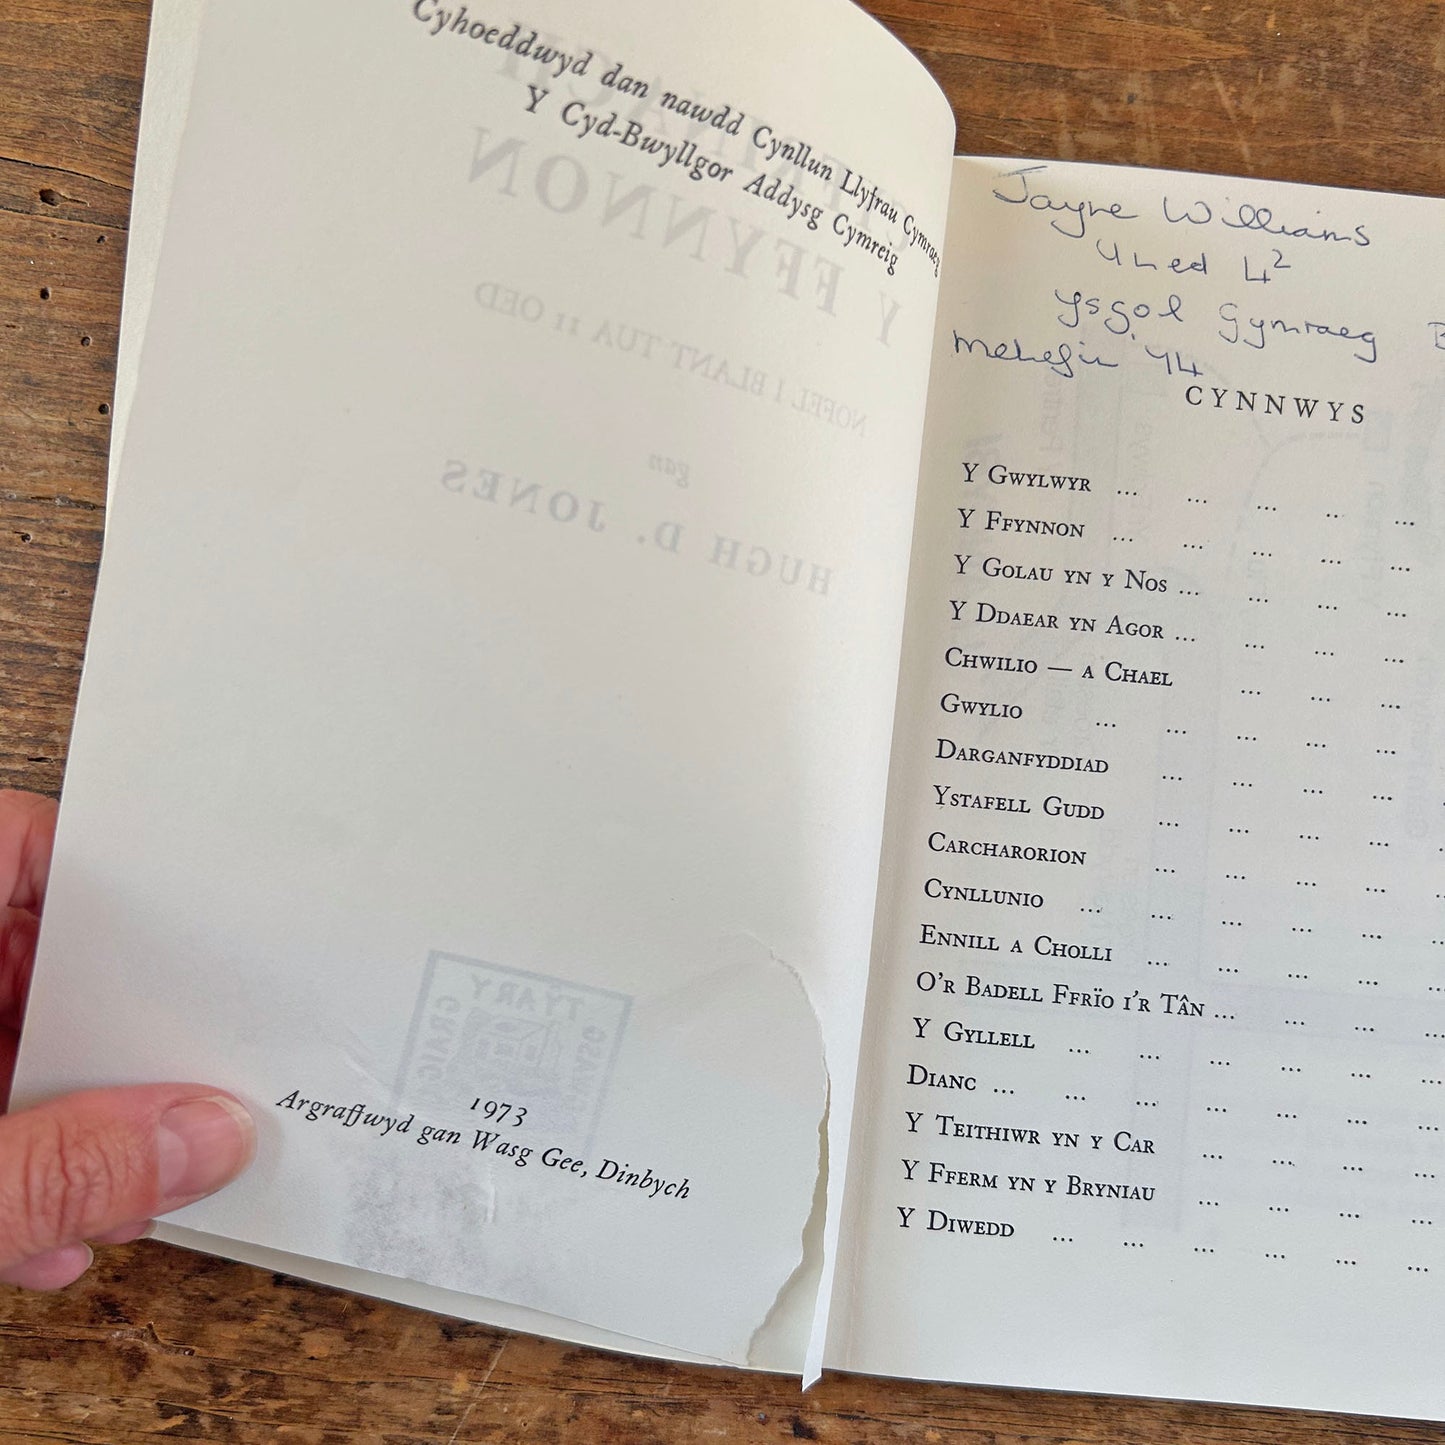 Cyhoeddwyd dan nawdd Cynllun Llyfrau Cymraeg
Y Cyd-Bwyllgor Addysg Cymreig
Y FFYNNON
NOFEL I BLANT TUA 11 OED
gan
HUGH D. JONES
TY AR Y GRAIG
1973
Argraffwyd gan Wasg Gee, Dinbych
Jayne Williams
Uned 4²
Ysgol Gymraeg B
Mehefin '94
CYNNWYS
Y Gwylwyr ... ... ... .. ...
Y Ffynnon ... ... ... ... ...
Y Golau yn y Nos ... ... ... ...
Y Ddaear yn Agor ... ... ... ...
Chwilio — a Chael ... ... ...
Gwylio ... ... ... ... ...
Darganfyddiad ... ... ... ...
Ystafell Gudd ... ... ... ...
Carcharorion ... ... ... ...
Cynllunio ... ... ... ... ...
Ennill a Cholli ... ... ... ... ...
O'r Badell Ffrïo i'r Tân ... ... ... ...
Y Gyllell ... ... ... ... ... ...
Dianc ... ... ... ... ... ... ...
Y Teithiwr yn y Car ... ... ... ...
Y Fferm yn y Bryniau ... ... ... ...
Y Diwedd ... ... ... ... ... ...